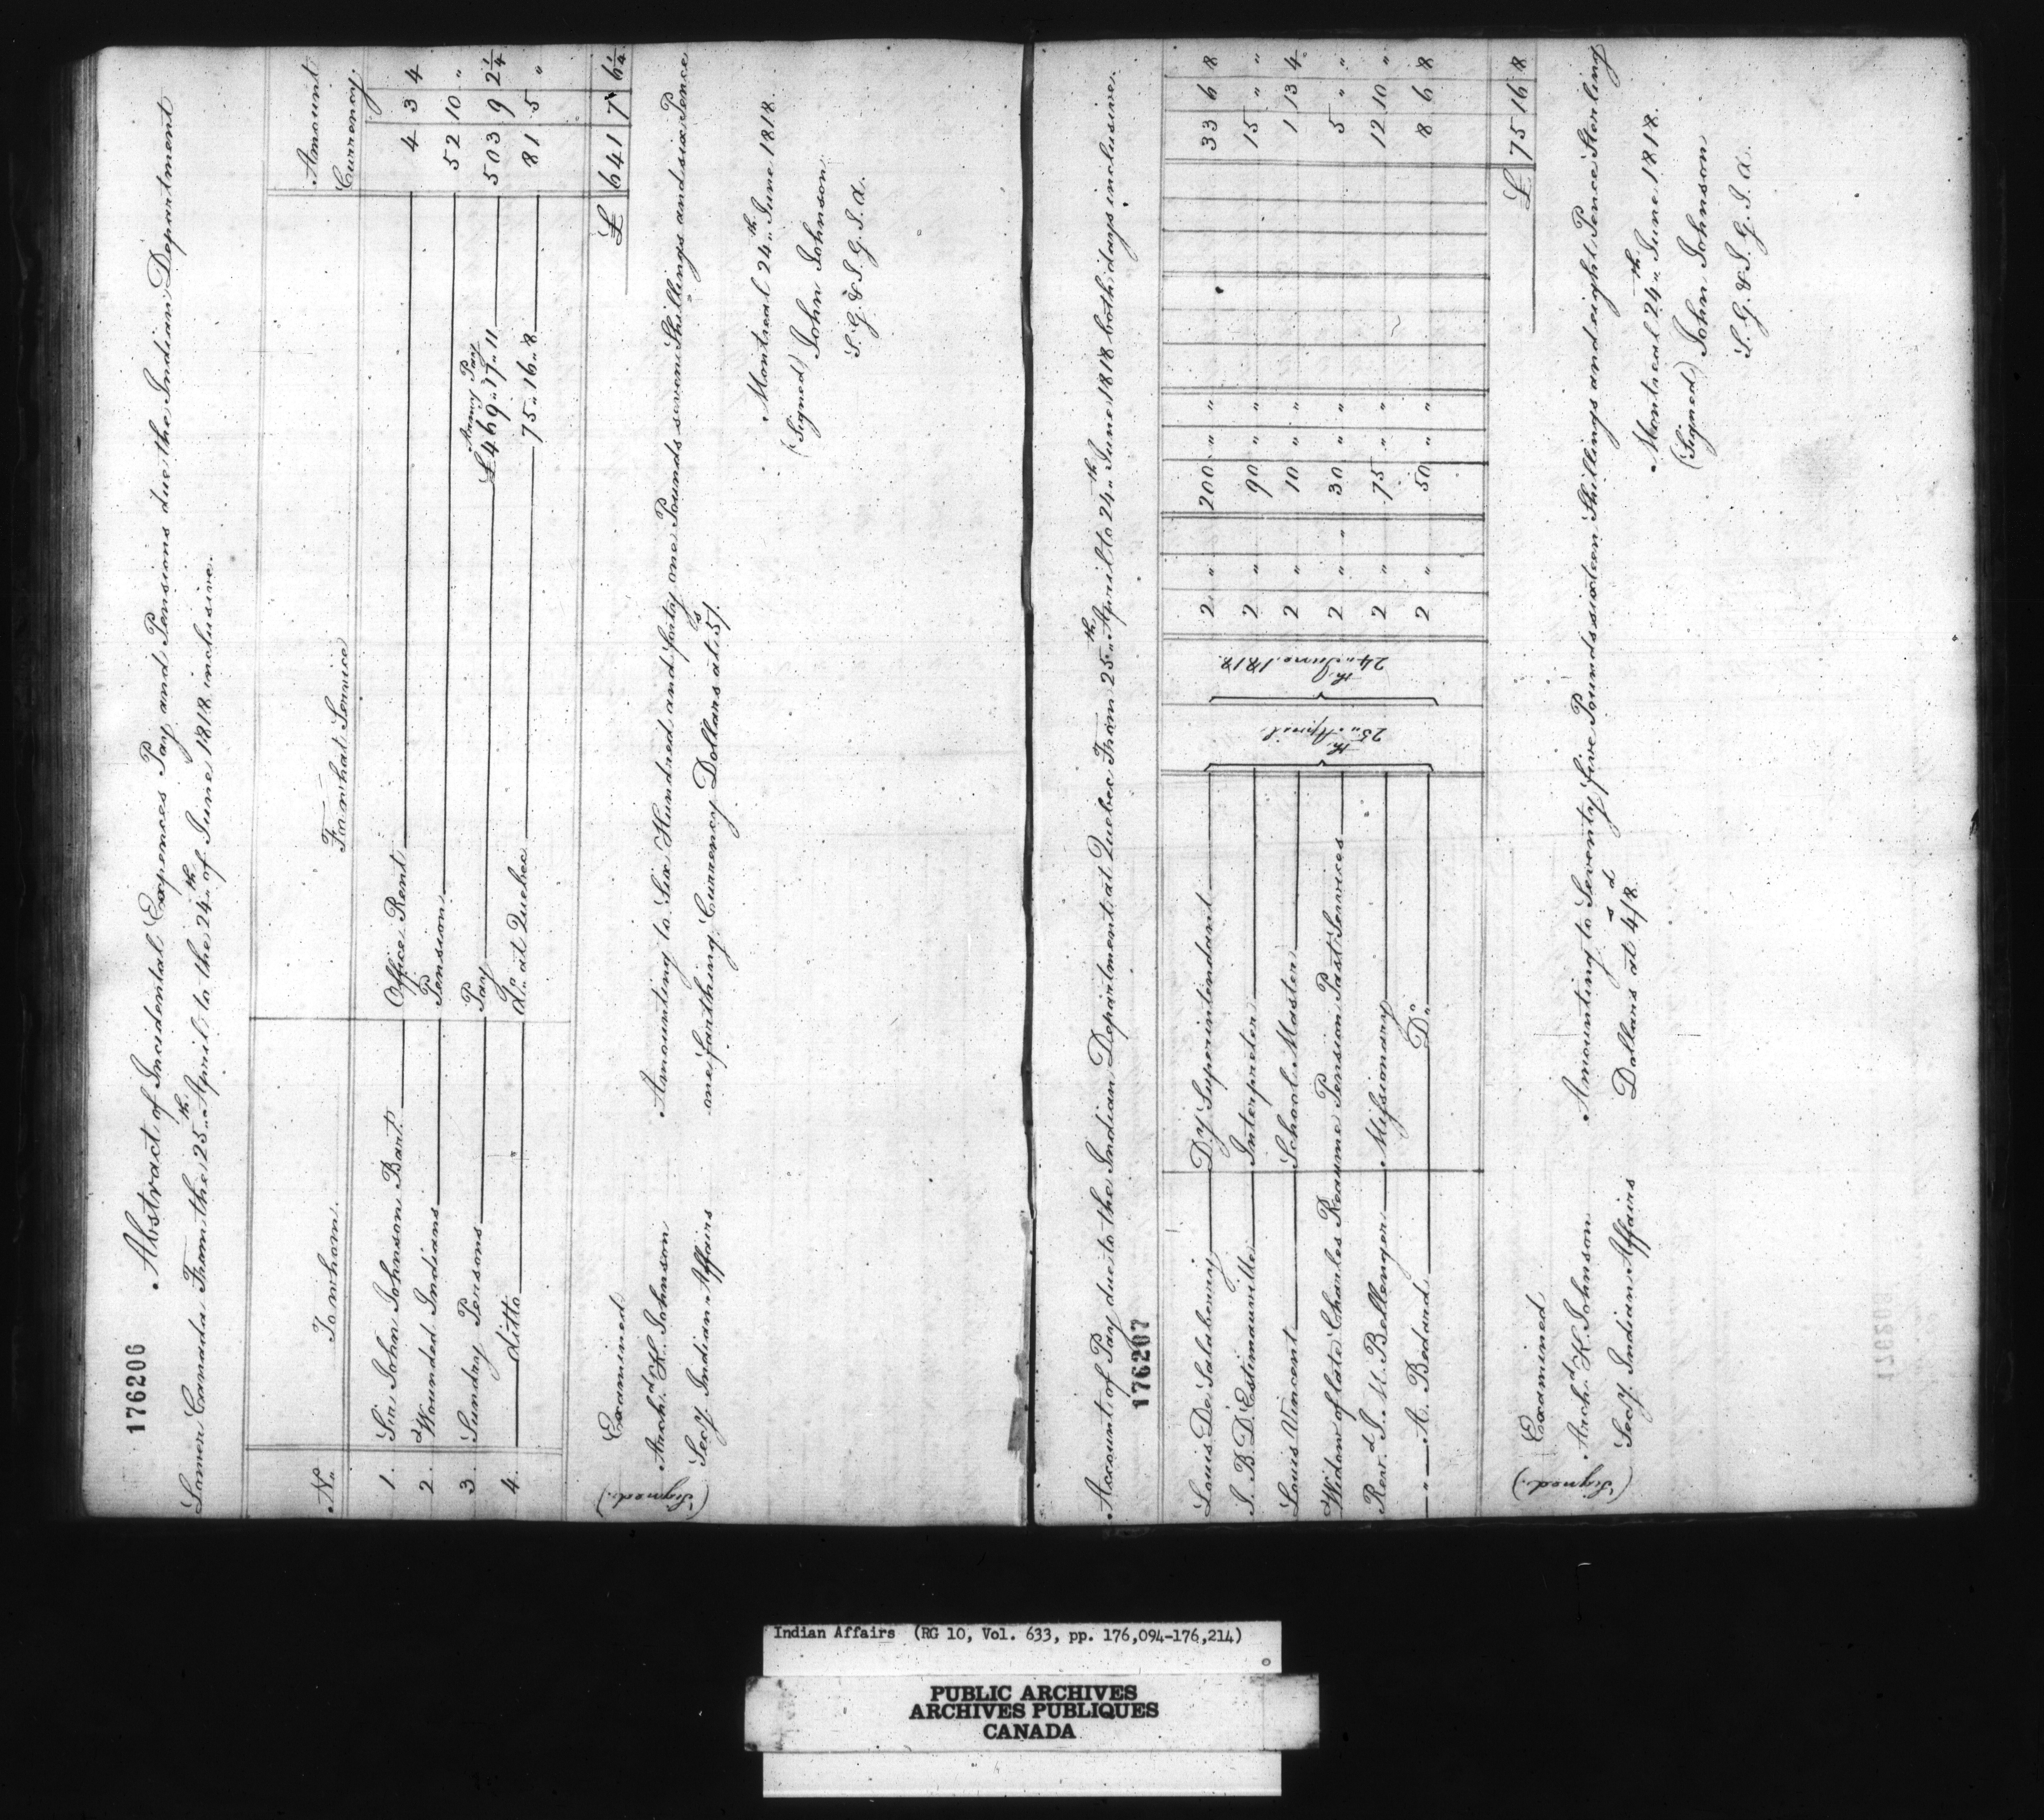 176206
Abstract of Incidental Expences Pay and Pensions due the Indian Department
Lower Canada From the 25th April to the 24th of June 1818 inclusive.
No. To whom For what Service Amount Currency
1. Sir John Johnson Bart. Office Rent 4 3 4
2. Wounded Indians Pension 52 10 "
3. Sundry Persons Pay Army Pay £469"17"11 503 9 2¼
4. Ditto Do. at Quebec 75"16"8 81 5 "
£ 641 7 6¼
Amounting to Six Hundred and forty one Pounds seven Shillings and six Pence
one farthing Currency Dollars at 5/s
Montreal 24th June 1818.
(Signed) John Johnson
S. G. & I. G. I. A.
Examined
(Signed) Archd. K. Johnson
Secy. Indian Affairs
Account of Pay due to the Indian Department at Quebec From 25th April to 24th June 1818 both days inclusive.
176207
Louis De Salaberry Dy. Superintendant 25th April 24th June 1818. 2 " " 200 " " 33 6 8
J. B. D'Estimauville Interpreter 2 " " 90 " " 15 " "
Louis Vincent School Master 2 " " 10 " " 1 13 4
Widow of late Charles Reaume Pension Past Services 2 " " 30 " " 5 " "
Revd. J. M. Bellenger Missionary 2 " " 75 " " 12 10 "
" A. Bedard Do. 2 " " 50 " " 8 6 8
£ 75 16 8
Amounting to Seventy five Pounds sixteen Shillings and eight Pence Sterling
Dollars at 4s/8d.
Montreal 24th June 1818.
(Signed) John Johnson
S. G. & I. G. I. A.
Examined
(Signed) Archd. K. Johnson
Secy. Indian Affairs
Indian Affairs (RG 10, Vol. 633, pp. 176,094-176,214)
PUBLIC ARCHIVES
ARCHIVES PUBLIQUES
CANADA